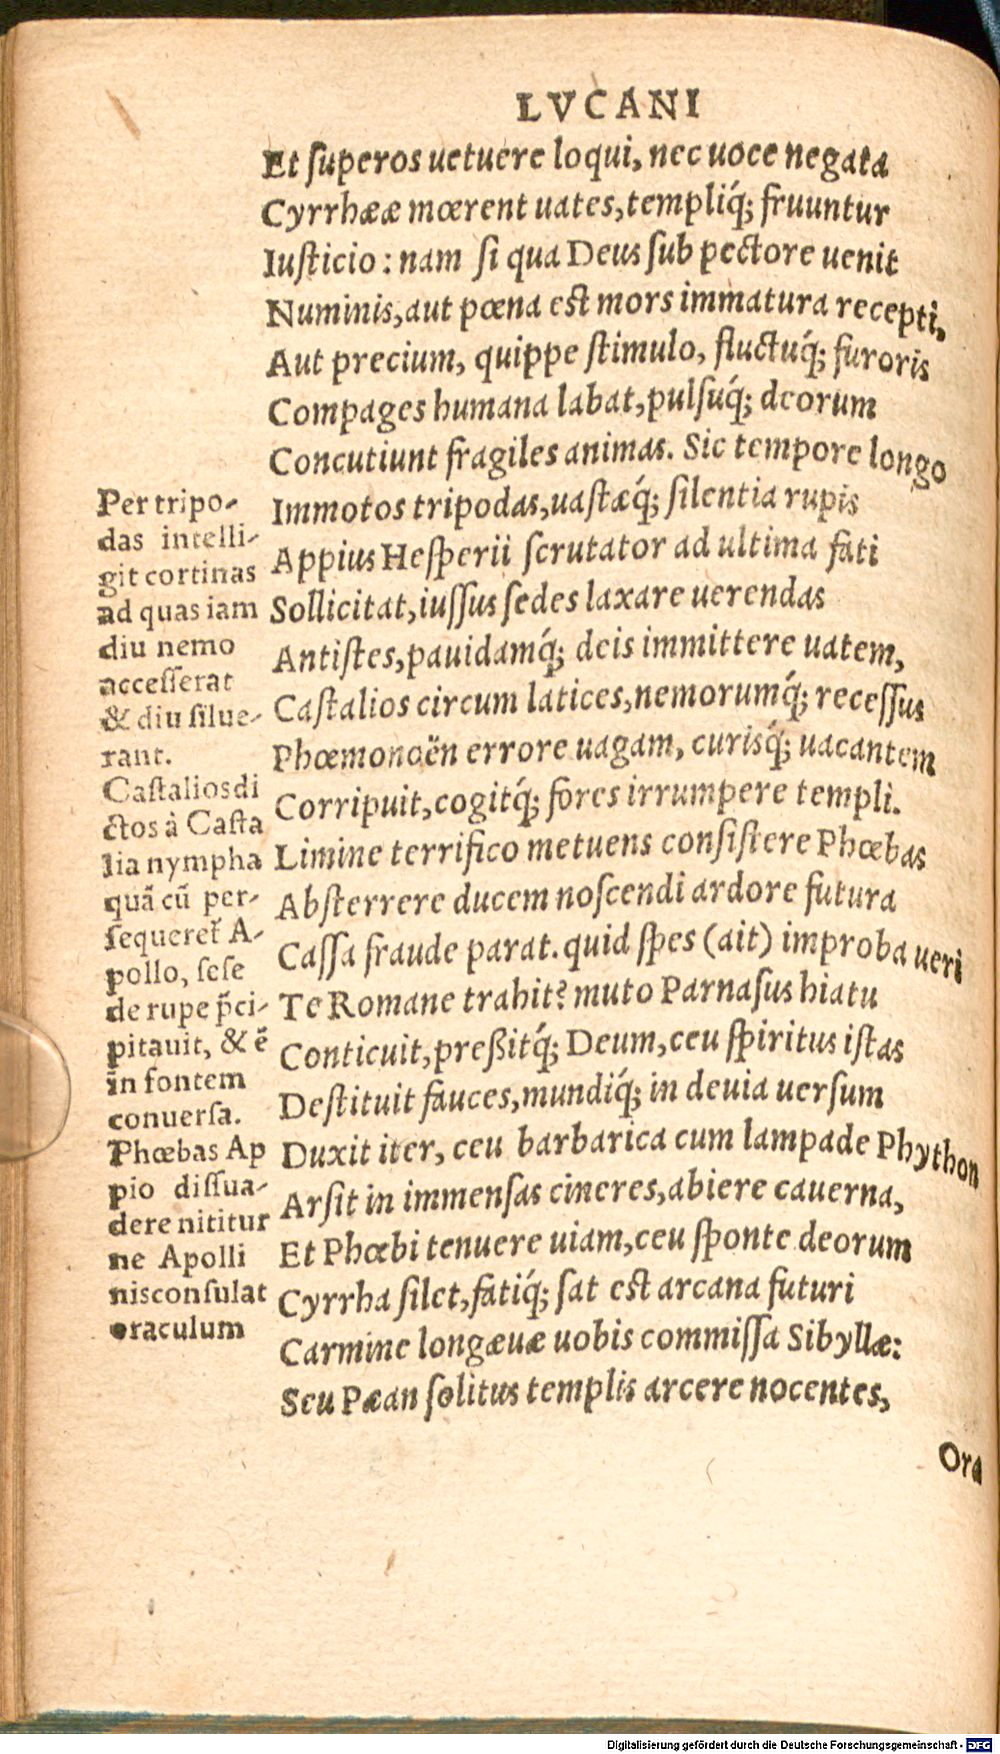 LVCANI
Et ſuperos uetuere loqui, nec uoce negata
Cyrrhææ mœrent uates, templiq́; fruuntur
Iuſticio: nam ſi qua Deus ſub pectore uenit
Numinis, aut pœna eſt mors immatura recepti,
Aut precium, quippe ſtimulo, fluctuq́; furoris
Compages humana labat, pulſuq́; deorum
Concutiunt fragiles animas. Sic tempore longo
Immotos tripodas, uaſtæq́; ſilentia rupis
Appius Heſperii ſcrutator ad ultima fati
Sollicitat, iuſſus ſedes laxare uerendas
Antiſtes, pauidamq́; deis immittere uatem,
Caſtalios circum latices, nemorumq́; receſſus
Phœmonoën errore uagam, curisq́; uacantem
Corripuit, cogitq́; fores irrumpere templi.
Limine terrifico metuens conſiſtere Phœbas
Abſterrere ducem noſcendi ardore futura
Caſſa fraude parat. quid ſpes (ait) improba ueri
Te Romane trahit? muto Parnaſus hiatu
Conticuit, preßitq́; Deum, ceu ſpiritus iſtas
Deſtituit fauces, mundiq́; in deuia uerſum
Duxit iter, ceu barbarica cum lampade Phython
Arſit in immenſas cineres, abiere cauerna,
Et Phœbi tenuere uiam, ceu ſponte deorum
Cyrrha ſilet, fatiq́; ſat eſt arcana futuri
Carmine longæuæ uobis commiſſa Sibyllæ:
Seu Pæan ſolitus templis arcere nocentes,
Ora
Per tripo-
das intelli-
git cortinas
ad quas iam
diu nemo
acceſſerat
& diu ſilue-
rant.
Caſtalios di
ctos à Caſta
lia nympha
quā cū per-
ſequeret̃ A-
pollo, ſeſe
de rupe p̃ci-
pitauit, & ē
in fontem
conuerſa.
Phœbas Ap
pio diſſua-
dere nititur
ne Apolli
nis conſulat
oraculum
Digitalisierung gefördert durch die Deutsche Forschungsgemeinschaft - DFG